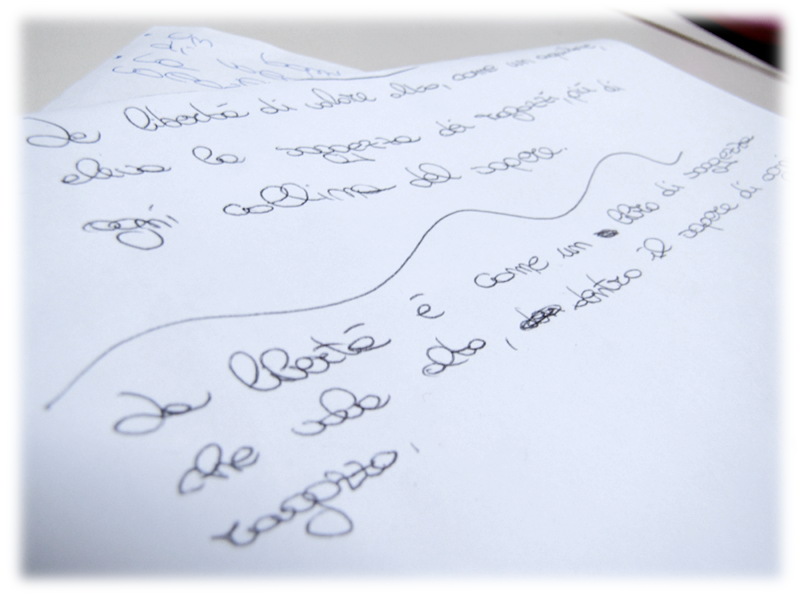 La libertà di volare alto, come un aquilone,
eleva la saggezza dei ragazzi, più di
ogni collina del sapere.
La libertà è come un libro di saggezza
che vola alto, dentro il sapere di ogni
ragazzo.